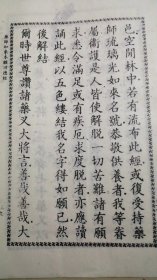 邑空閒林中若有流布此經或復受持藥
師琉璃光如來名號恭敬供養者我等眷
屬衛護是人皆使解脫一切苦難諸有願
求悉令滿足或有疾厄求度脫者亦應讀
誦此經以五色縷結我名字得如願已然
後解結
爾時世尊讚諸藥叉大將言善哉善哉大